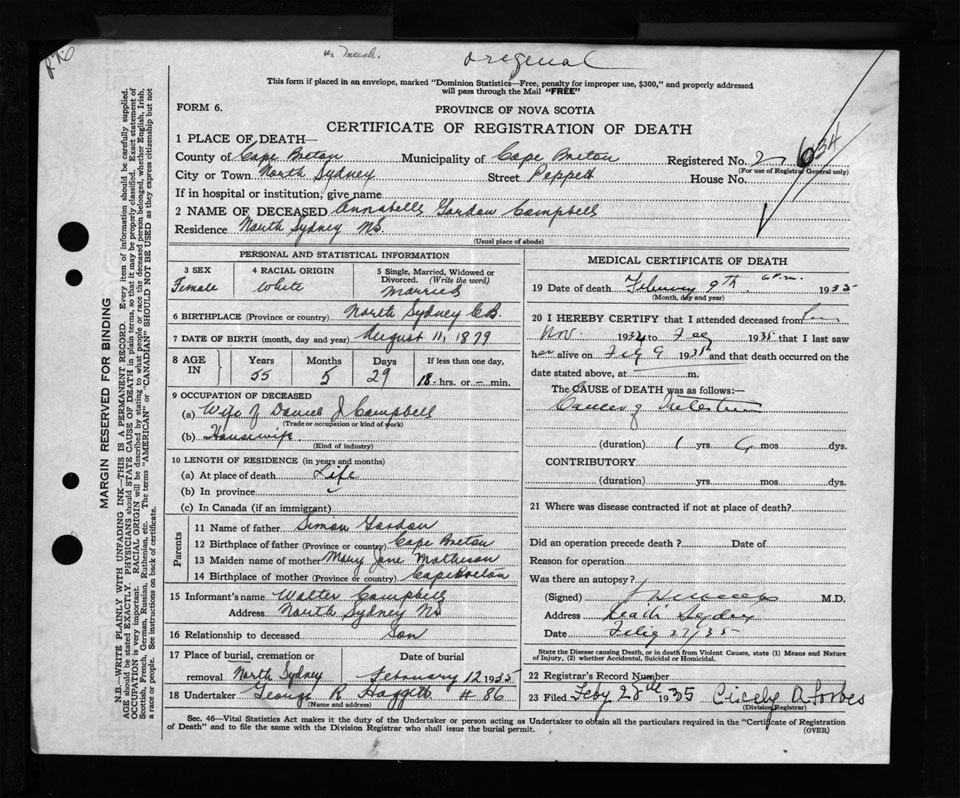 original
This form if placed in an envelope, marked "Dominion Statistics—Free, penalty for improper use, $300," and properly addressed
will pass through the Mail "FREE"
FORM 6.
PROVINCE OF NOVA SCOTIA
CERTIFICATE OF REGISTRATION OF DEATH
1 PLACE OF DEATH—
County of Cape Breton Municipality of Cape Breton Registered No. 2
634
(For use of Registrar General only)
City or Town North Sydney Street Peppett House No.
If in hospital or institution, give name
2 NAME OF DECEASED Annabelle Gordon Campbell
Residence North Sydney NS.
(Usual place of abode)
PERSONAL AND STATISTICAL INFORMATION
3 SEX Female
4 RACIAL ORIGIN White
5 Single, Married, Widowed or Divorced. (Write the word) Married
6 BIRTHPLACE (Province or country) North Sydney C.B.
7 DATE OF BIRTH (month, day and year) August 11, 1879
8 AGE IN Years 55 Months 5 Days 29 If less than one day, 18 hrs. or — min.
9 OCCUPATION OF DECEASED
(a) Wife of Daniel J Campbell
(Trade or occupation or kind of work)
(b) Housewife
(Kind of industry)
10 LENGTH OF RESIDENCE (in years and months)
(a) At place of death Life
(b) In province
(c) In Canada (if an immigrant)
Parents
11 Name of father Simon Gordon
12 Birthplace of father (Province or country) Cape Breton
13 Maiden name of mother Mary Jane Matheson
14 Birthplace of mother (Province or country) Cape Breton
15 Informant's name Walter Campbell
Address North Sydney NS
16 Relationship to deceased Son
17 Place of burial, cremation or removal North Sydney
Date of burial February 12 1935
18 Undertaker George R Haggett # 86
(Name and address)
MEDICAL CERTIFICATE OF DEATH
19 Date of death February 9th 6 P.m. 1935
(Month, day and year)
20 I HEREBY CERTIFY that I attended deceased from
Nov. 1934 to Feb 1935 that I last saw
her alive on Feb 9 1935 and that death occurred on
date stated above, at m.
The CAUSE OF DEATH was as follows:—
Cancer of
(duration) 1 yrs. 6 mos. dys.
CONTRIBUTORY
(duration) yrs. mos. dys.
21 Where was disease contracted if not at place of death?
Did an operation precede death? Date of
Reason for operation
Was there an autopsy?
(Signed) M.D.
Address North Sydney
Date Feby 27/35
State the Disease causing Death, or in death from Violent Causes, state (1) Means and
Nature of Injury, (2) whether Accidental, Suicidal or Homicidal.
22 Registrar's Record Number
23 Filed Feby 28th 1935 Cicely A. Forbes
(Division Registrar)
Sec. 46—Vital Statistics Act makes it the duty of the Undertaker or person acting as Undertaker to obtain all the particulars required in the "Certificate of Registration
of Death" and to file the same with the Division Registrar who shall issue the burial permit.
(OVER)
MARGIN RESERVED FOR BINDING
N.B.—WRITE PLAINLY WITH UNFADING INK—THIS IS A PERMANENT RECORD. Every item of information should be carefully supplied.
AGE should be stated EXACTLY. PHYSICIANS should STATE CAUSE OF DEATH in plain terms, so that it may be properly classified. Exact statement of
OCCUPATION is very important. RACIAL ORIGIN will be described by stating to what people or race the deceased person belonged, whether English, Irish,
Scottish, French, German, Russian, Ruthenian, etc. The terms "AMERICAN" or "CANADIAN" SHOULD NOT BE USED as they express citizenship but not
a race or people. See instructions on back of certificate.